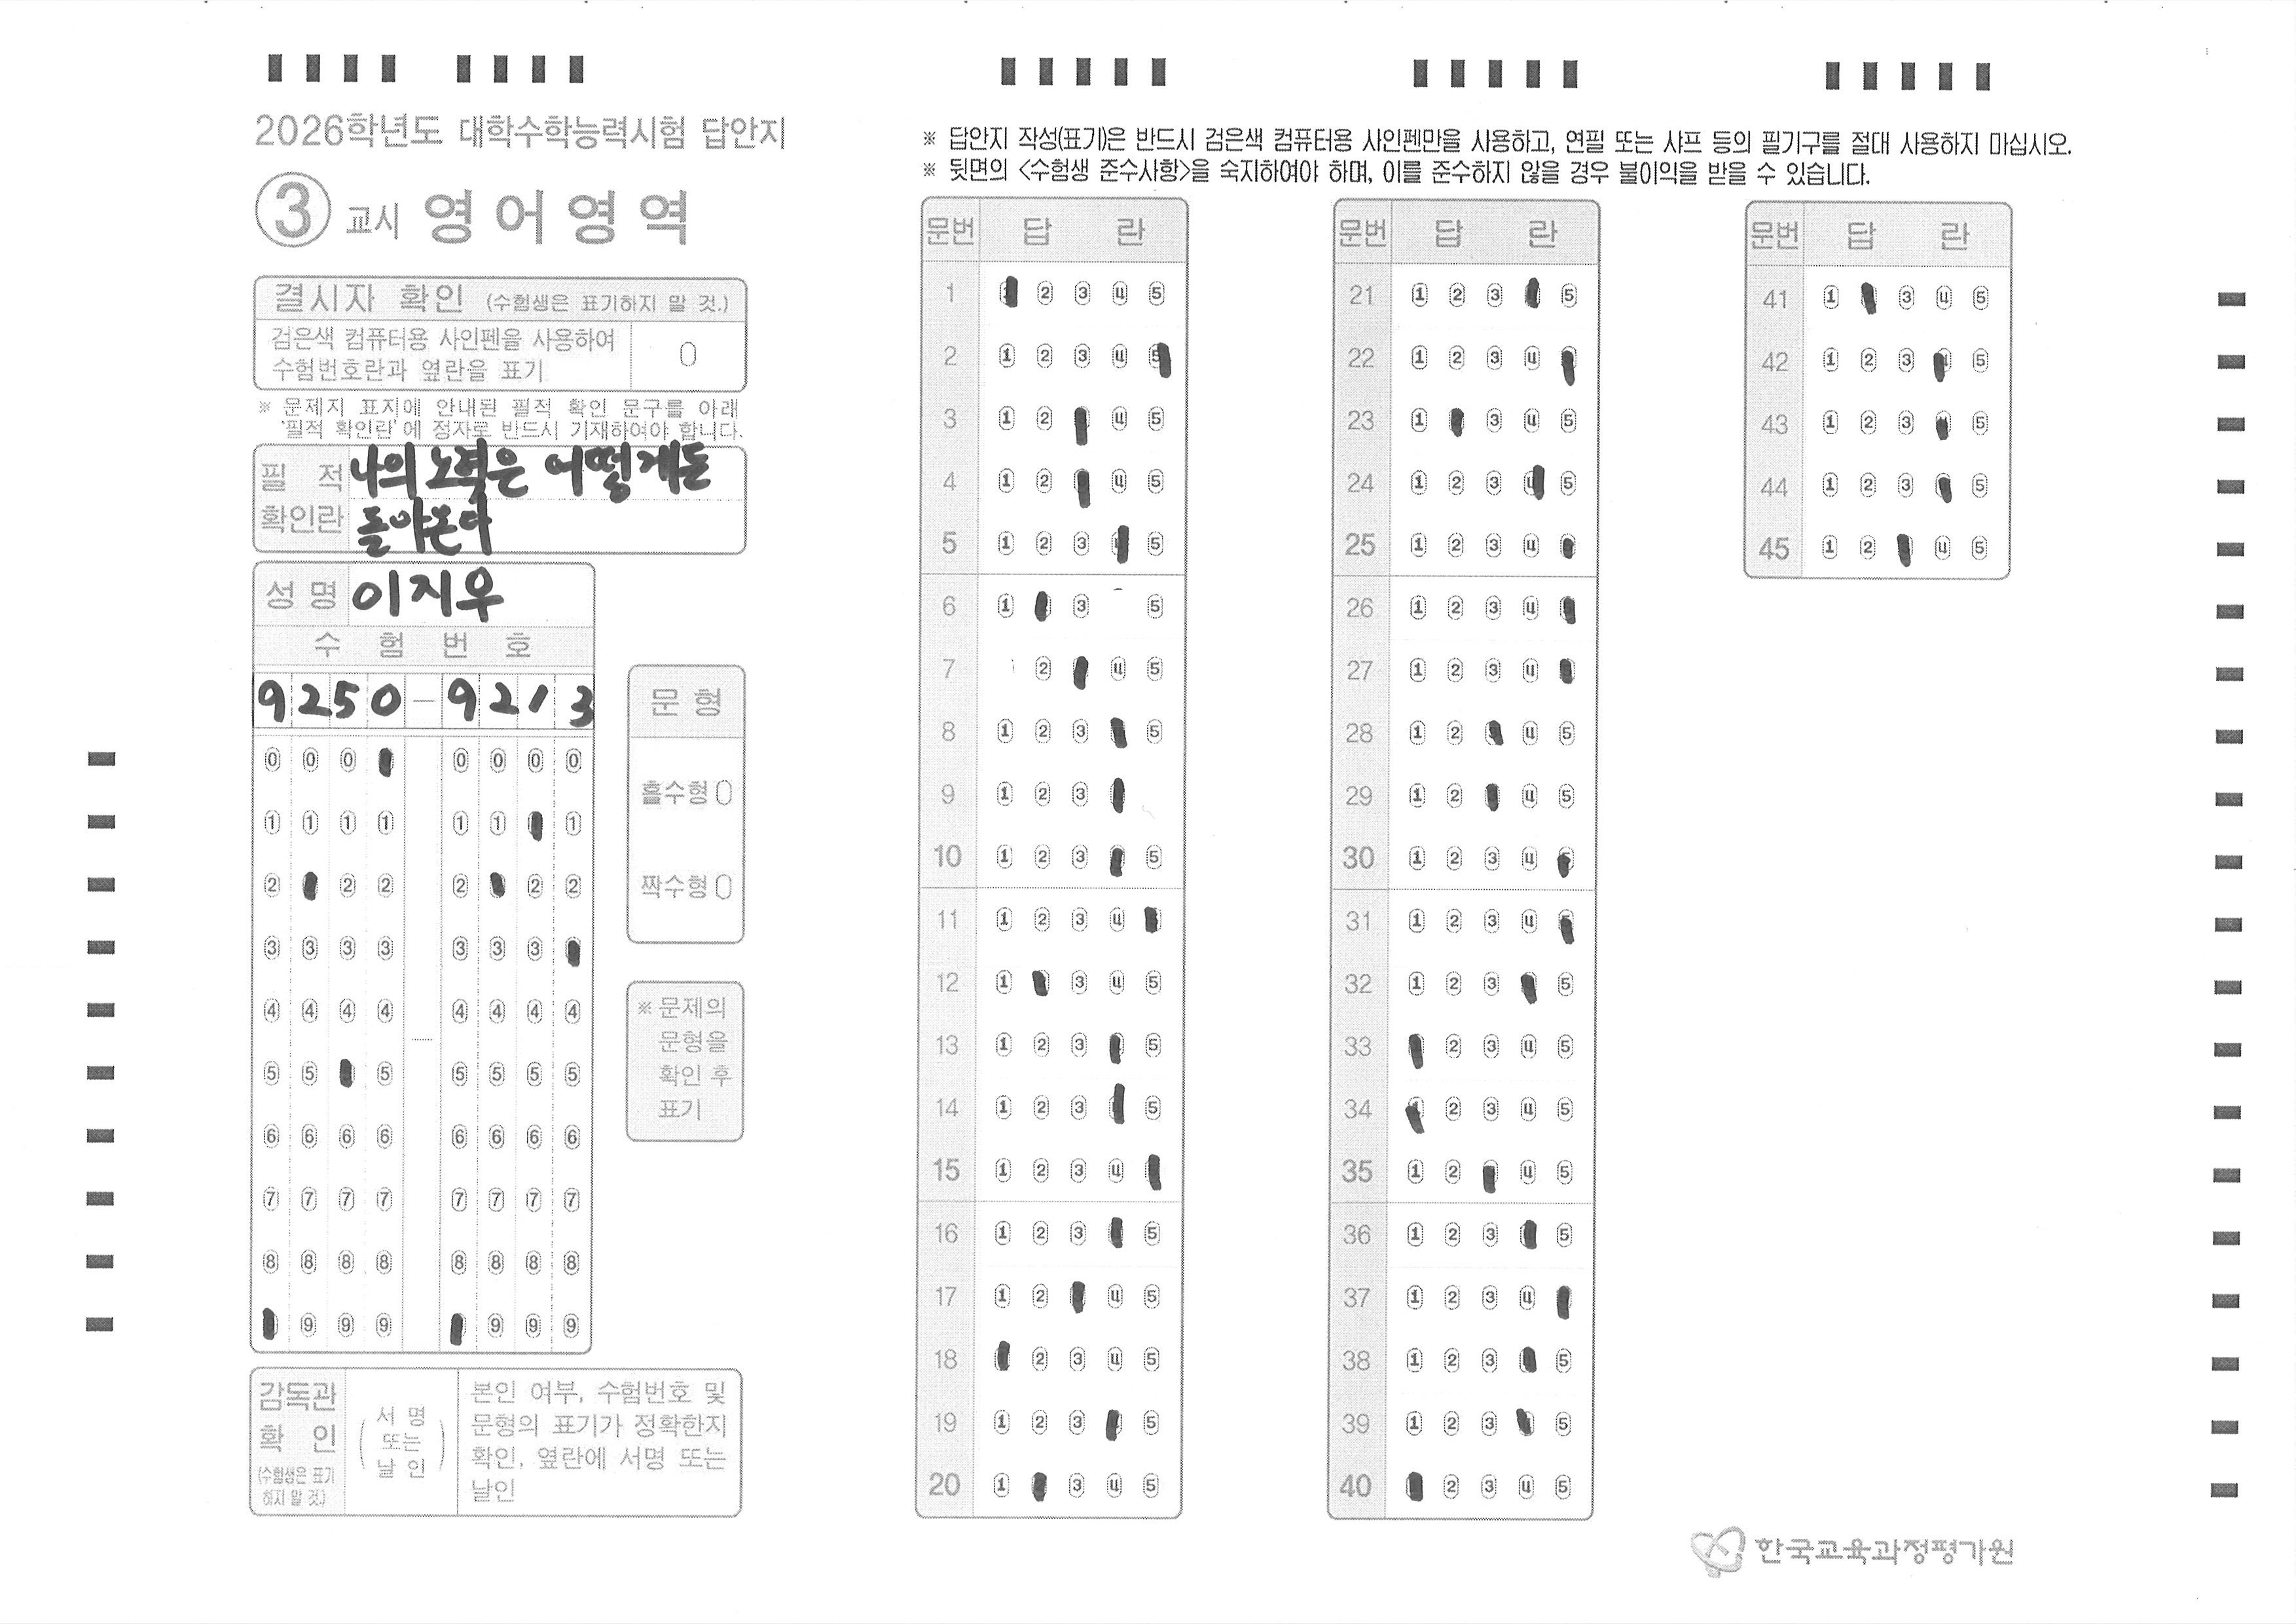 2026학년도 대학수학능력시험 답안지
③ 교시 영어영역
결시자 확인 (수험생은 표기하지 말 것.)
검은색 컴퓨터용 사인펜을 사용하여
수험번호란과 옆란을 표기
※ 문제지 표지에 안내된 필적 확인 문구를 아래
'필적 확인란'에 정자로 반드시 기재하여야 합니다.
필 적
확인란
나의 노력은 어떻게든
돌아온다
성 명 이지우
수 험 번 호
9250-9213
0 0 0 0 0 0 0
1 1 1 1 1 1 1
2 2 2 2 2 2
3 3 3 3 3 3 3
4 4 4 4 4 4 4 4
5 5 5 5 5 5 5
6 6 6 6 6 6 6 6
7 7 7 7 7 7 7 7
8 8 8 8 8 8 8 8
9 9 9 9 9 9
문 형
홀수형
짝수형
※ 문제의
문형을
확인 후
표기
감독관
확 인
(수험생은 표기
하지 말 것.)
(서 명
또는
날 인)
본인 여부, 수험번호 및
문형의 표기가 정확한지
확인, 옆란에 서명 또는
날인
※ 답안지 작성(표기)은 반드시 검은색 컴퓨터용 사인펜만을 사용하고, 연필 또는 샤프 등의 필기구를 절대 사용하지 마십시오.
※ 뒷면의 <수험생 준수사항>을 숙지하여야 하며, 이를 준수하지 않을 경우 불이익을 받을 수 있습니다.
문번 답 란
1 2 3 4 5
2 1 2 3 4 5
3 1 2 4 5
4 1 2 4 5
5 1 2 3 5
6 1 3 5
7 2 4 5
8 1 2 3 5
9 1 2 3
10 1 2 3 5
11 1 2 3 4
12 1 3 4 5
13 1 2 3 5
14 1 2 3 5
15 1 2 3 4
16 1 2 3 5
17 1 2 4 5
18 2 3 4 5
19 1 2 3 5
20 1 3 4 5
문번 답 란
21 1 2 3 5
22 1 2 3 4
23 1 3 4 5
24 1 2 3 5
25 1 2 3 4
26 1 2 3 4
27 1 2 3 4
28 1 2 4 5
29 1 2 4 5
30 1 2 3 4
31 1 2 3 4
32 1 2 3 5
33 2 3 4 5
34 2 3 4 5
35 1 2 4 5
36 1 2 3 5
37 1 2 3 4
38 1 2 3 5
39 1 2 3 5
40 2 3 4 5
문번 답 란
41 1 3 4 5
42 1 2 3 5
43 1 2 3 5
44 1 2 3 5
45 1 2 4 5
한국교육과정평가원